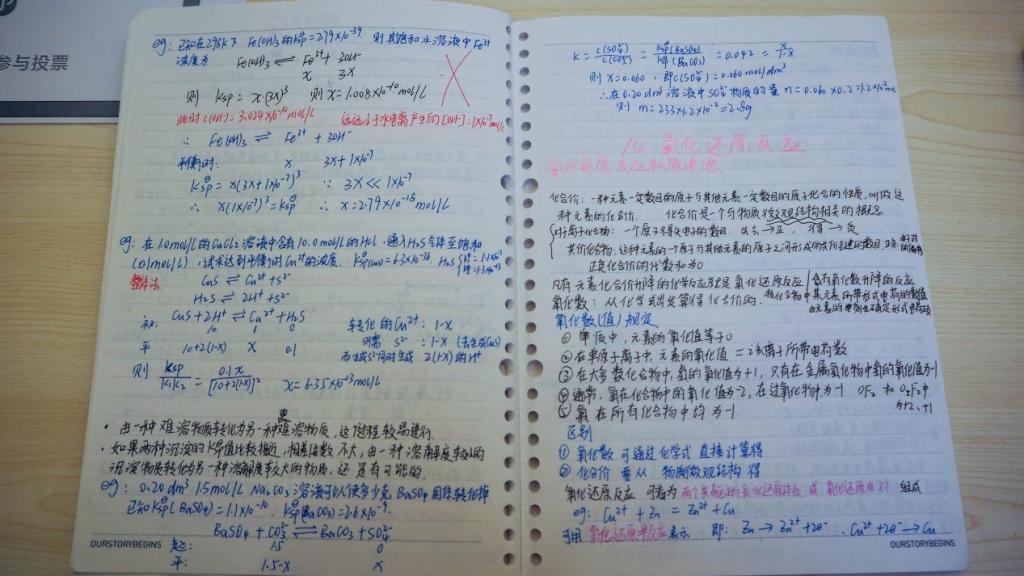 参与投票
eg: 已知在298K下 Fe(OH)₃的Ksp^θ=2.79×10⁻³⁹ 则其饱和水溶液中Fe³⁺
浓度为 Fe(OH)₃ ⇌ Fe³⁺ + 3OH⁻
x 3x
则 Ksp = x·(3x)³ 则x=1.008×10⁻¹⁰mol/L
此时c(OH)=3.024×10⁻¹⁰mol/L 远远小于水电离产生的[OH⁻]=1×10⁻⁷mol/L
∴ Fe(OH)₃ ⇌ Fe³⁺ + 3OH⁻
平衡时: x 3x+1×10⁻⁷
Ksp^θ = x(3x+1×10⁻⁷)³ ∵ 3x≪1×10⁻⁷
∴ x(1×10⁻⁷)³=Ksp^θ ∴ x=2.79×10⁻¹⁸mol/L
eg: 在1.0mol/L的CuCl₂溶液中含有10.0mol/L的HCl,通入H₂S气体至饱和
(0.1mol/L),试求达到平衡时Cu²⁺的浓度. Ksp^θ(CuS)=6.3×10⁻³⁶ H₂S
CuS ⇌ Cu²⁺+S²⁻
H₂S ⇌ 2H⁺+S²⁻
∴ CuS+2H⁺ ⇌ Cu²⁺+H₂S 转化的Cu²⁺: 1-x
初: 10 1 0 S²⁻: 1-x (去生成CuS)
平 10+2(1-x) x 0.1 2(1-x)的H⁺
则 Ksp/K₁K₂ = 0.1x/[10+2(1-x)]²
· 由一种难溶物质转化为另一种更难溶物质,这过程较易进行.
· 如果两种沉淀的Ksp^θ值比较接近,相差倍数不大,由一种溶解度较小的
沉淀物质转化为另一种溶解度较大的物质,还是有可能的.
eg: 0.20dm³ 1.5mol/L Na₂CO₃溶液可以使多少克BaSO₄固体转化掉
已知Ksp^θ(BaSO₄)=1.1×10⁻¹⁰. Ksp^θ(BaCO₃)=2.6×10⁻⁹.
BaSO₄+CO₃²⁻ ⇌ BaCO₃+SO₄²⁻
起: 1.5 0
平: 1.5-x x
OURSTORYBEGINS
K = c(SO₄²⁻)/c(CO₃²⁻) = Ksp^θ(BaSO₄)/Ksp^θ(BaCO₃) = 0.042 = x/1.5-x
则x=0.060,即c(SO₄²⁻)=0.060mol/dm³
∴在0.20dm³溶液中SO₄²⁻物质的量 n=0.060×0.2=1.2×10⁻²mol
则 m=233×1.2×10⁻²=2.8g
10. 氧化还原反应
氧化还原反应和原电池
化合价: 一种元素一定数目的原子与其他元素一定数目的原子化合的性质,叫做这
种元素的化合价. 化合价是个与物质微观结构相关的概念
对于离子化合物: 一个原子得失电子的数目. 失去→正, 得→负
共价化合物: 这种元素的一个原子与其他元素的原子之间形成的共用电子对的数目
正负化合价的代数和为0
凡有元素化合价升降的化学反应就是氧化还原反应 含有氧化数升降的反应
氧化数: 从化学式出发算得化合价的.
氧化数(值)规定
① 单质中,元素的氧化值等于0
② 在单原子离子中,元素的氧化值=该离子所带电荷数
③ 在大多数化合物中,氢的氧化值为+1,只有在金属氢化物中氢的氧化值为-1
④ 通常,氧在化合物中的氧化值为-2,在过氧化物中为-1 OF₂和O₂F₂中
为+2,+1
⑤ 氟在所有化合物中均为-1
区别
① 氧化数可通过化学式直接计算得
② 化合价要从物质微观结构得
氧化还原反应可看为两个共轭的氧化还原体系或氧化还原电对组成
eg: Cu²⁺+Zn = Zn²⁺+Cu
可用氧化还原半反应表示 即: Zn→Zn²⁺+2e⁻, Cu²⁺+2e⁻→Cu
OURSTORYBEGINS